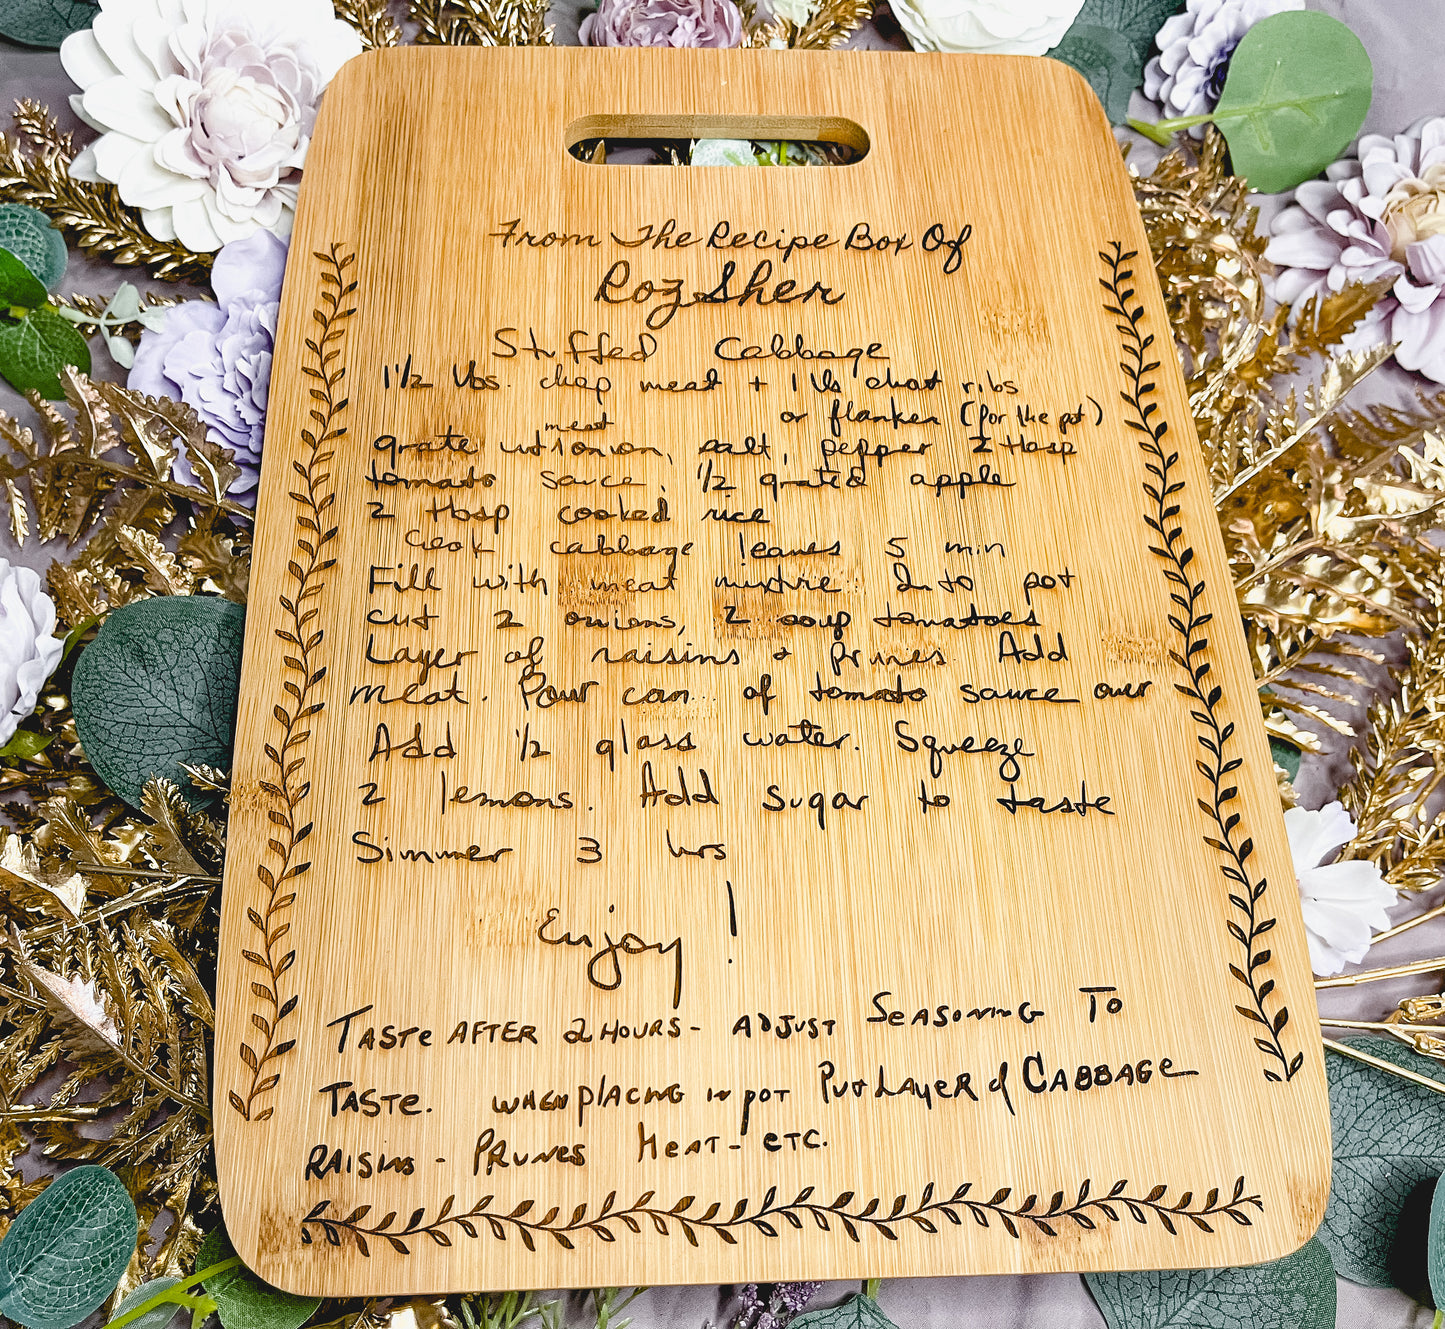 From The Recipe Box Of
Roz Sher
Stuffed Cabbage
1 1/2 lbs. chop meat + 1 lb chart ribs
or flanken (for the pot)
meat
grate w/ 1 onion, salt, pepper 2 tbsp
tomato sauce, 1/2 grated apple
2 tbsp cooked rice
Cook cabbage leaves 5 min
Fill with meat mixture Into pot
cut 2 onions, 2 soup tomatoes
Layer of raisins + prunes. Add
meat. Pour can of tomato sauce over
Add 1/2 glass water. Squeeze
2 lemons. Add sugar to taste
Simmer 3 hrs
Enjoy!
TASTE AFTER 2 HOURS - ADJUST SEASONING TO
TASTE. WHEN PLACING IN POT PUT LAYER of CABBAGE
RAISINS - PRUNES MEAT - ETC.